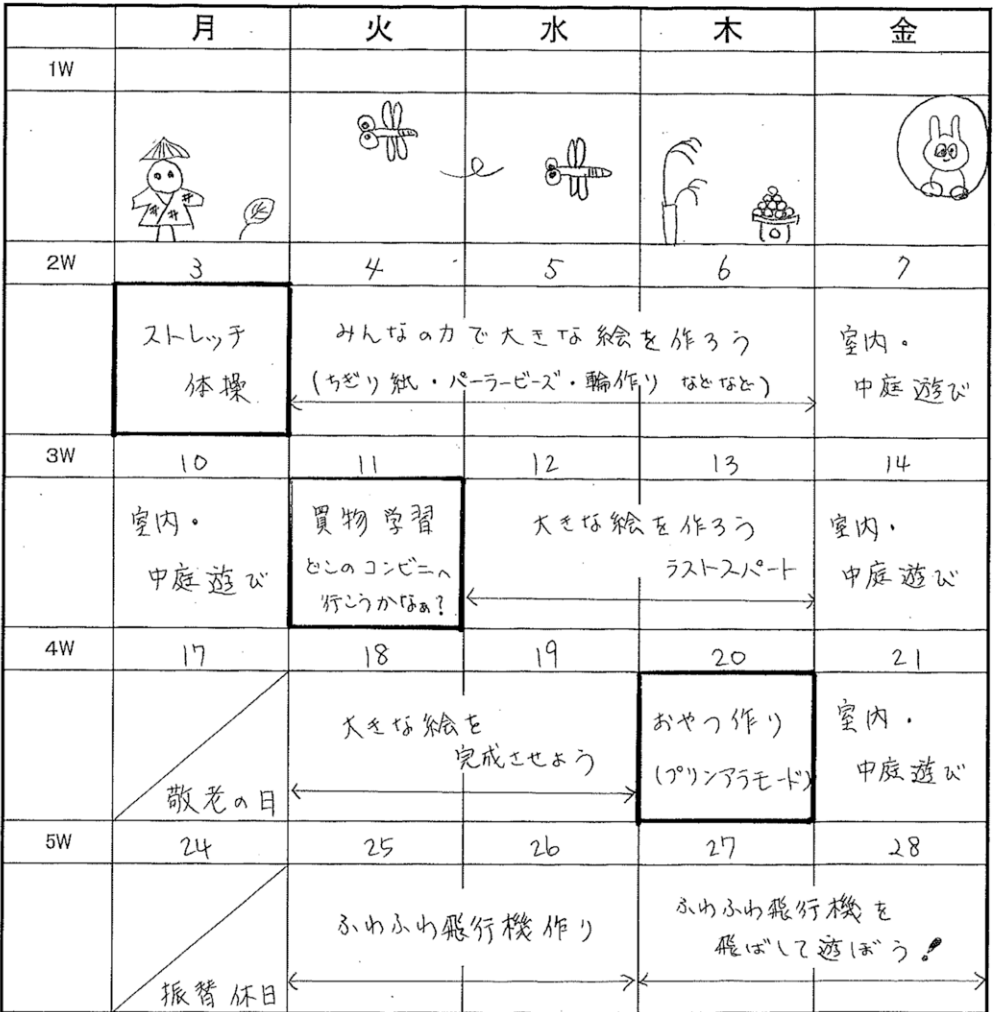 月 火 水 木 金
1W
2W 3 4 5 6 7
ストレッチ
体操
みんなの力で大きな絵を作ろう
(ちぎり紙・パーラービーズ・輪作り などなど)
室内・
中庭遊び
3W 10 11 12 13 14
室内・
中庭遊び
買物学習
どこのコンビニへ
行こうかなぁ?
大きな絵を作ろう
ラストスパート
室内・
中庭遊び
4W 17 18 19 20 21
敬老の日
大きな絵を
完成させよう
おやつ作り
(プリンアラモード)
室内・
中庭遊び
5W 24 25 26 27 28
振替休日
ふわふわ飛行機作り
ふわふわ飛行機を
飛ばして遊ぼう!